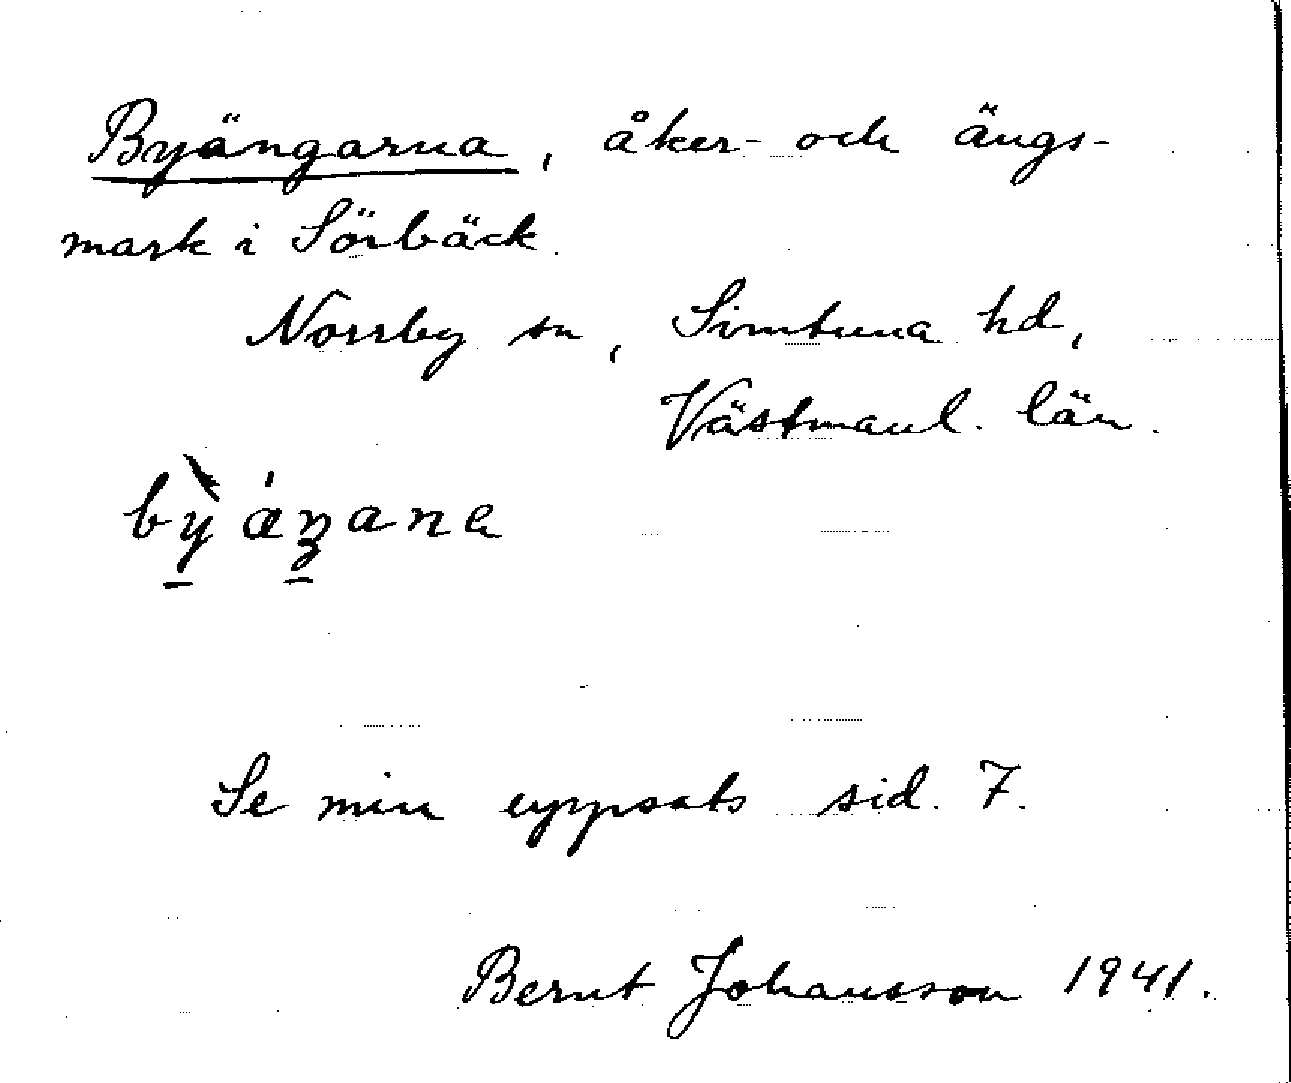 Byängarna, åker- och ängs-
mark i Sörbäck.
Norrby sn, Simtuna hd,
Västmanl. län.
bỳǽŋana
Se min uppsats sid. 7.
Bernt Johansson 1941.